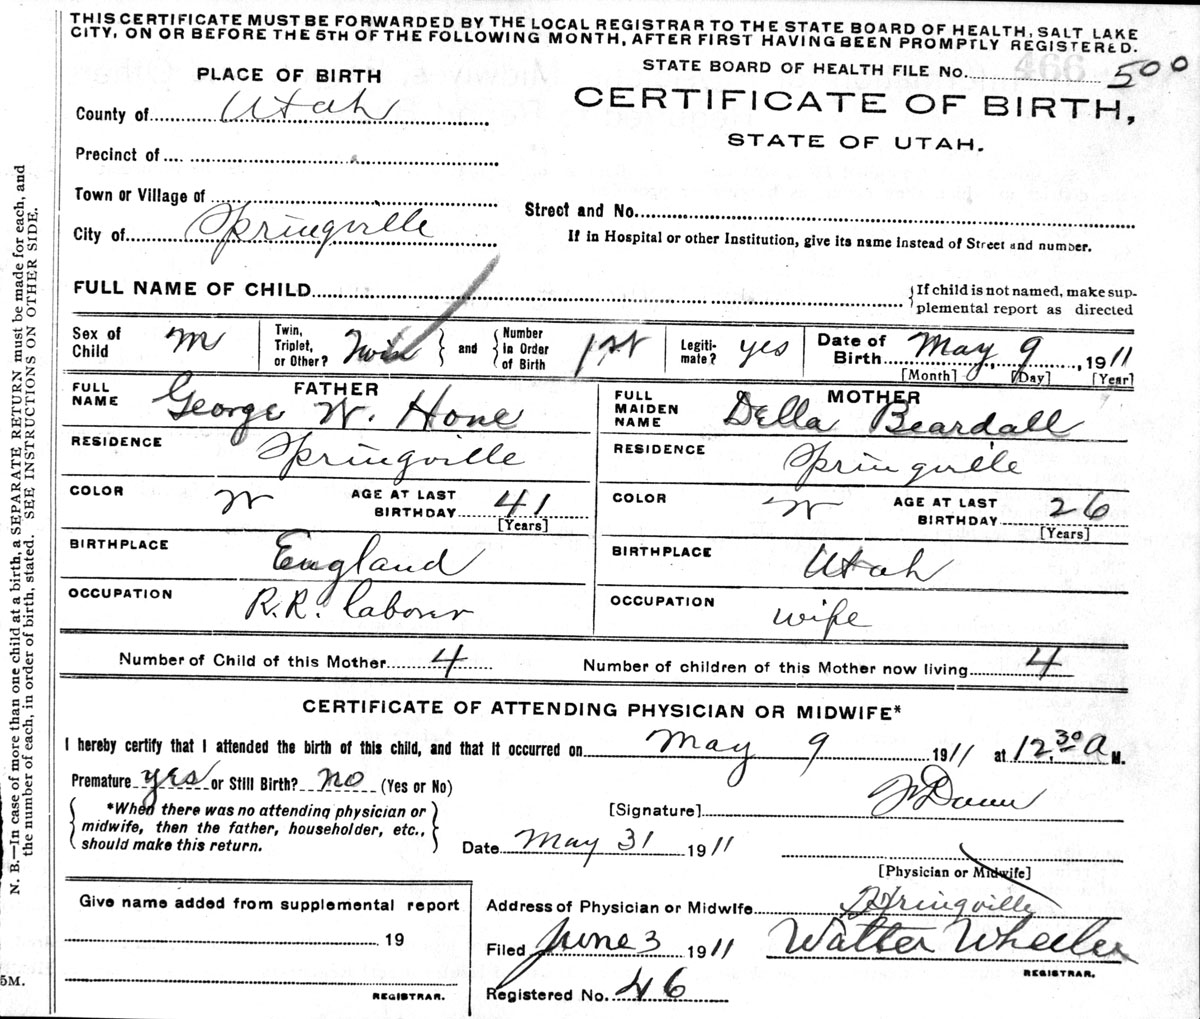 THIS CERTIFICATE MUST BE FORWARDED BY THE LOCAL REGISTRAR TO THE STATE BOARD OF HEALTH, SALT LAKE
CITY, ON OR BEFORE THE 5TH OF THE FOLLOWING MONTH, AFTER FIRST HAVING BEEN PROMPTLY REGISTERED.
PLACE OF BIRTH
STATE BOARD OF HEALTH FILE No. 500
466
County of Utah
CERTIFICATE OF BIRTH,
STATE OF UTAH.
Precinct of
Town or Village of
Street and No.
City of Springville
If in Hospital or other Institution, give its name instead of Street and number.
FULL NAME OF CHILD
If child is not named, make sup-
plemental report as directed
Sex of
Child M
Twin,
Triplet,
or Other? Twin
and
Number
in Order
of Birth 1st
Legiti-
mate? yes
Date of
Birth May 9, 1911
[Month] [Day] [Year]
FATHER
FULL
NAME George W. Hone
RESIDENCE Springville
COLOR W
AGE AT LAST
BIRTHDAY 41
[Years]
BIRTHPLACE England
OCCUPATION R.R. laborer
MOTHER
FULL
MAIDEN
NAME Della Beardall
RESIDENCE Springville
COLOR W
AGE AT LAST
BIRTHDAY 26
[Years]
BIRTHPLACE Utah
OCCUPATION wife
Number of Child of this Mother 4
Number of children of this Mother now living 4
CERTIFICATE OF ATTENDING PHYSICIAN OR MIDWIFE*
I hereby certify that I attended the birth of this child, and that it occurred on May 9 1911 at 12.30 A M.
Premature yes or Still Birth? no (Yes or No)
*When there was no attending physician or
midwife, then the father, householder, etc.,
should make this return.
[Signature]
Date May 31 1911
[Physician or Midwife]
Give name added from supplemental report
19
REGISTRAR.
Address of Physician or Midwife Springville
Filed June 3 1911 Walter Wheeler
REGISTRAR.
Registered No. 46
N. B.—In case of more than one child at a birth, a SEPARATE RETURN must be made for each, and
the number of each, in order of birth, stated. SEE INSTRUCTIONS ON OTHER SIDE.
5M.